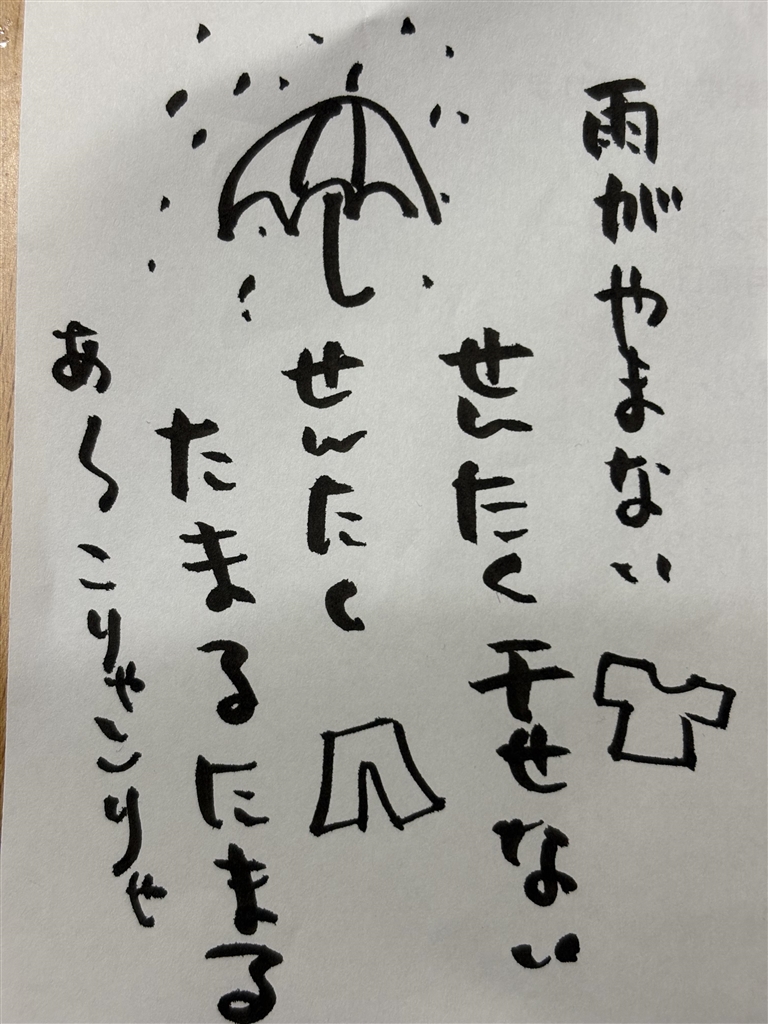 雨がやまない
せんたく干せない
せんたく
たまるたまる
あ〜こりゃこりゃ